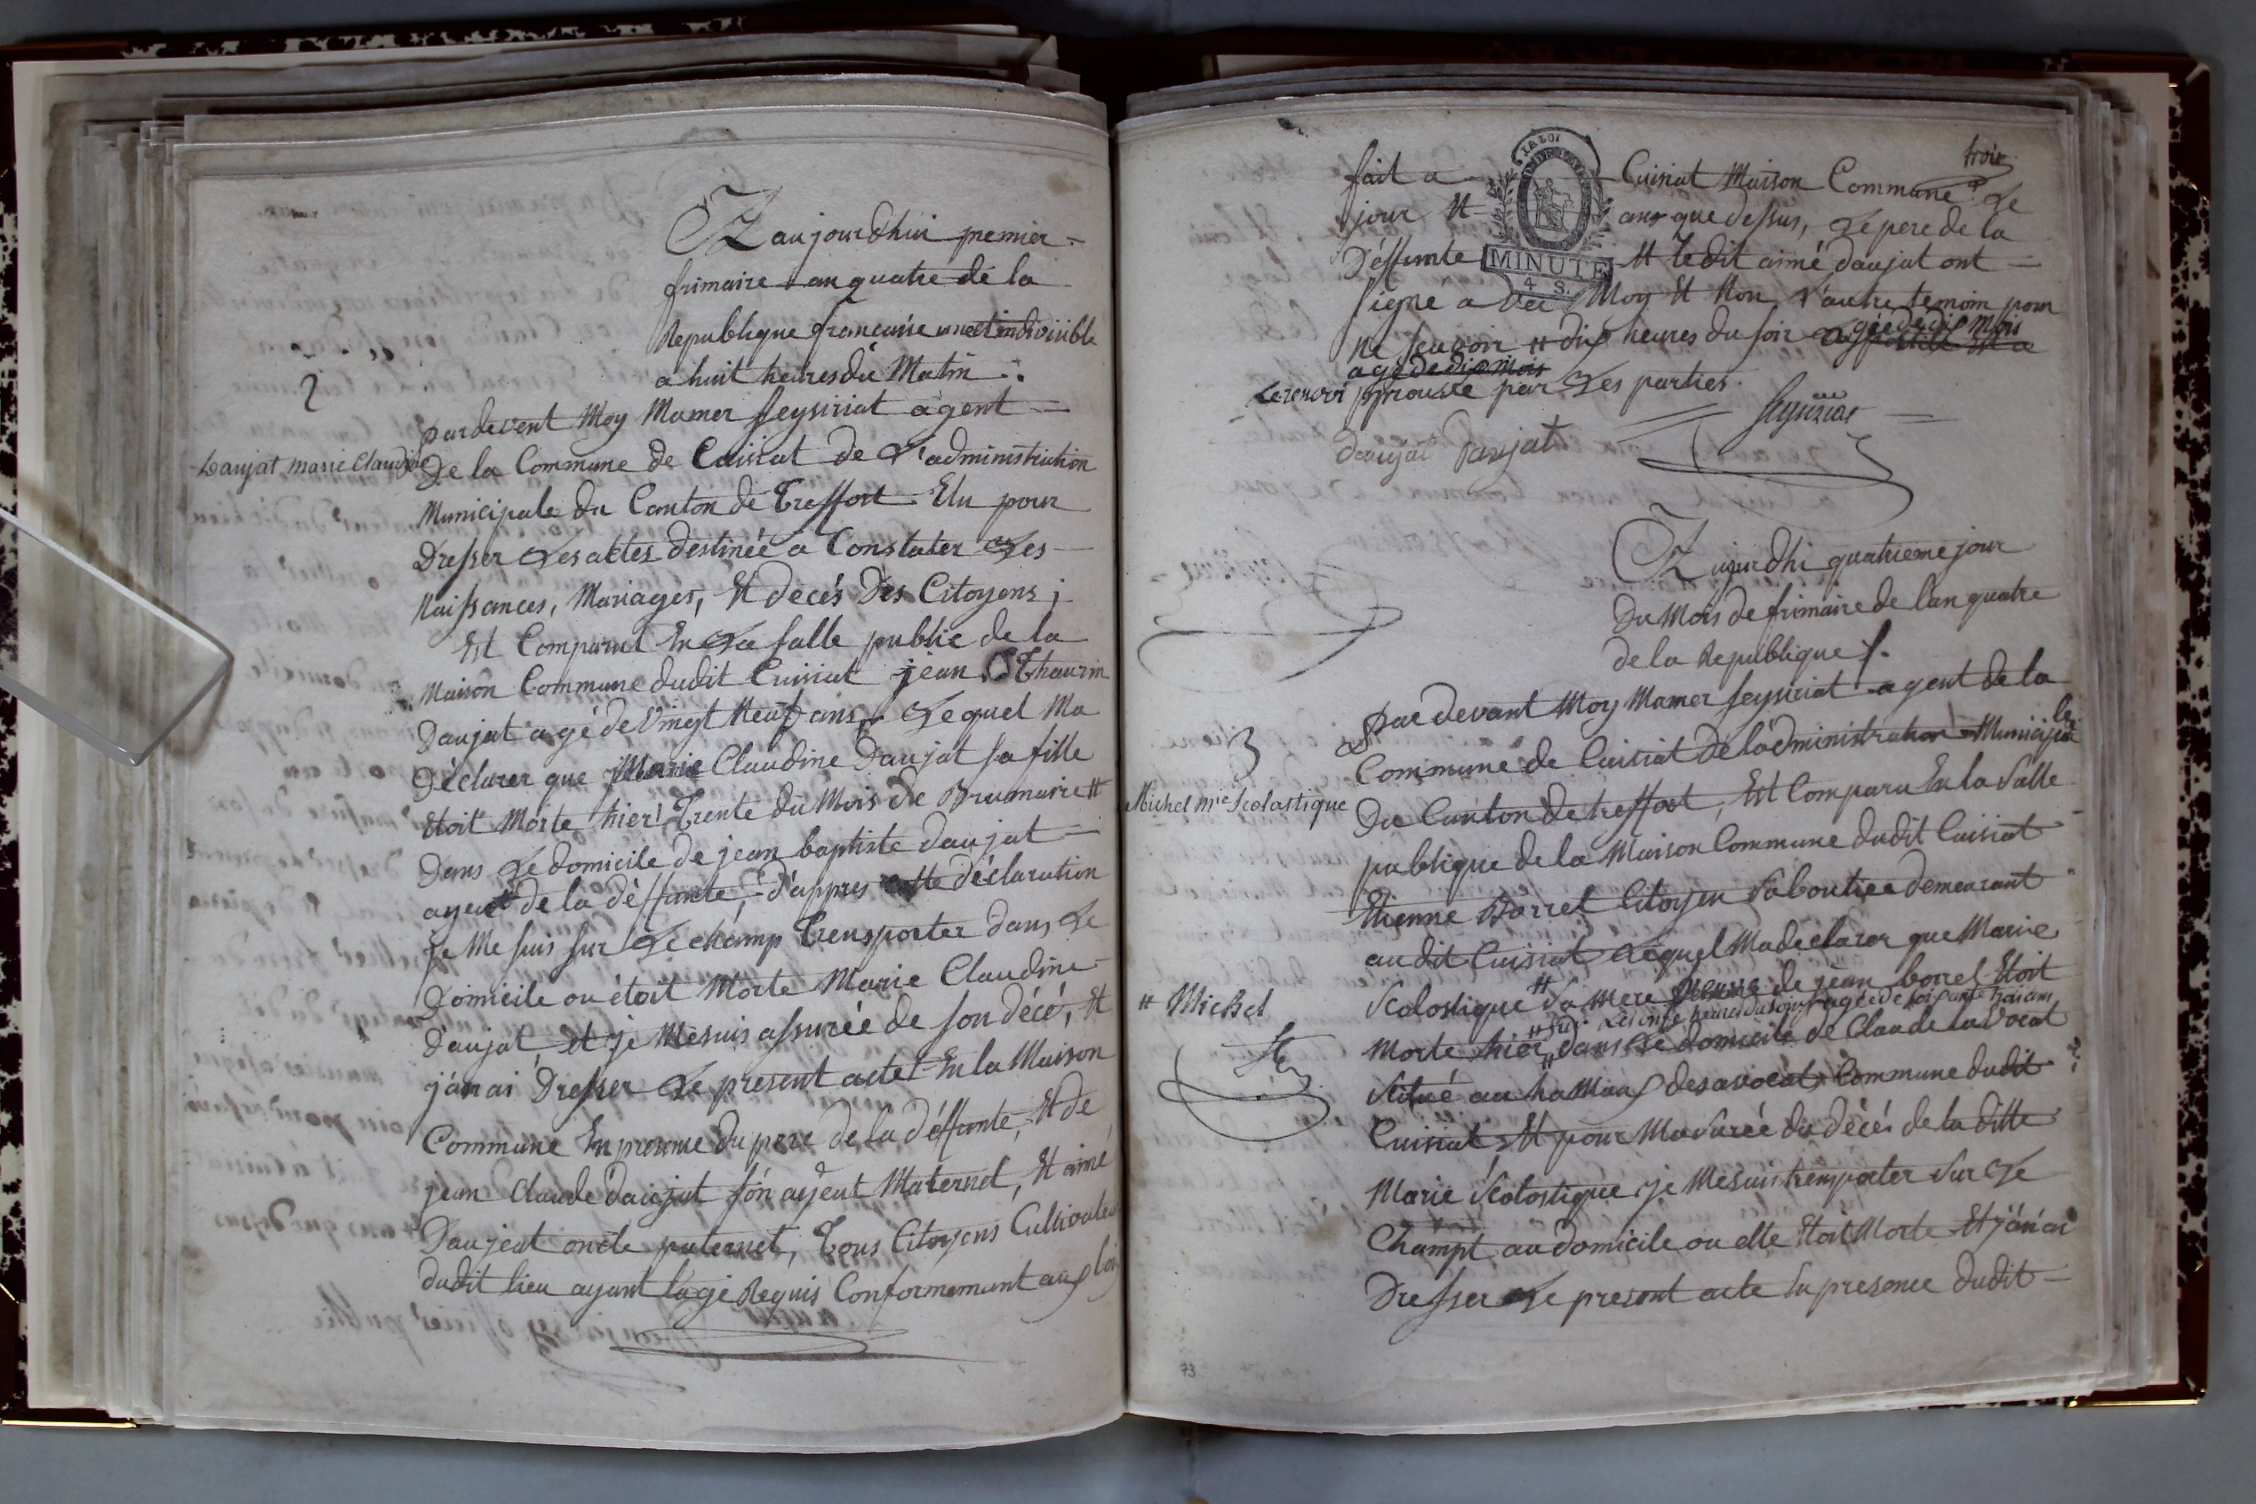 aujourdhui premier
frimaire an quatre de la
Republique francaise une et indivisible
a huit heures du Matin
2
pardevent Moy Mamer Seysiriat agent
Daujat Marie Claudine
De la Commune de Cuisiat de L'administration
Municipale du Canton de Treffort Elu pour
Dresser Les actes destinée a Constater Les
Naissances, Mariages, Et décés Des Citoyens;
Est Comparut En La salle public de la
Maison Commune dudit Cuisiat jean Thaurin
Daujat agé de vingt Neuf ans, Lequel Ma
Déclarer que Marie Claudine Daujat sa fille
Etoit Morte hier Trente du Mois de Brumaire #
Dans Le domicile de jean baptiste daujat
ayeut de la déffunte, d'appres cette déclaration
je Me suis sur Le champ Trensporter dans Le
Domicile ou étoit Morte Marie Claudine
Daujat et je Me suis assurée de son décé, Et
j'an ai Dresser Le present acte En la Maison
Commune En presence du pere de la déffunte, Et de
jean Claude daujat son ayeut Maternel, Et aimé
Daujat oncle paternel, Tous Citoyens Cultivateurs
dudit lieu ayant l'age Requis Conformemant aux loi
trois
fait a Cuisiat Maison Commune Le
jour Et ans que dessus, Le pere de la
LA LOI
Déffunte Et Ledit aimé daujat ont
MINUTE
4 S.
signé a vec Moy Et Non L'autre temoin pour
Ne scavoir # dix heures du soir agéé de dix Mois
agé de dix Mois
Le renvoi approuvé par Les parties.
Seysiriat
daujat Daujat
aujourdhi quatrieme jour
Du Mois de frimaire de l'an quatre
de la Republique f.
pardevant Moy Mamer Seysiriat agent de la
Commune de Cuisiat De l'administration Municipale
3
Du Canton de treffort, Est Comparu En la Salle
Michel Mie Scolastique
publique de la Maison Commune dudit Cuisiat
Etienne Borrel Citoyen Saboutier demeurant
audit Cuisiat Lequel Ma declarer que Marie
# Michel
Scolostique # Sa Mere de jean borrel Etoit
Sur Les onze heures du soir agée de soixante trois ans
Morte hier # dans Le domicile de Claude lavocat
Scitué au hamaux des avocat Commune dudit
Cuisiat, Et pour M'assurée du décés de la ditte
Marie Scolostique je Me suis trensporter Sur Le
Champt au domicile ou elle Etoit Morte Et j'an'ai
Dresser Le present acte En presence dudit
73